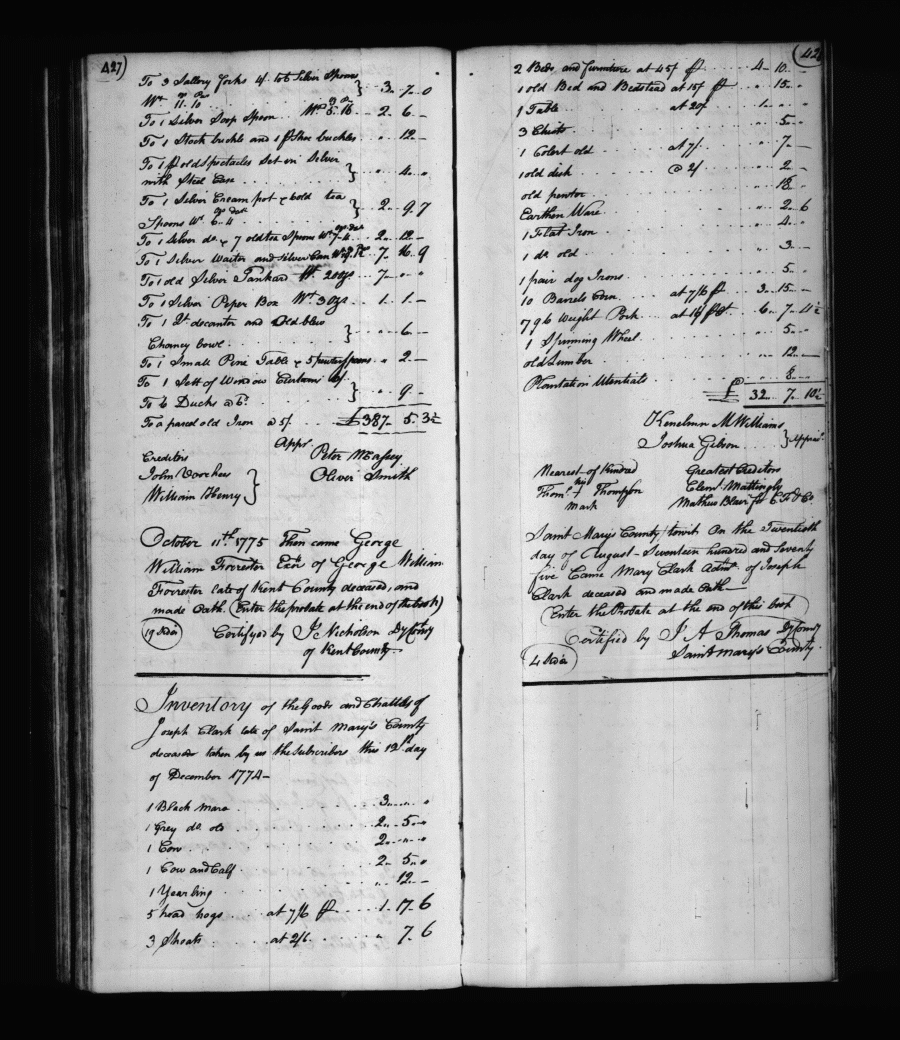 427)
To 3 Sallery forks 4/. to 6 Silver Spoons
Wt. 11. 10 } 3 - 7 - 0
To 1 Silver Soop Spoon Wt. 8. 16 2 - 6 -
To 1 Stock buckle and 1 pr Shoe buckles " - 12 -
To 1 pr old Spectacles Set in Silver
with Steel Case } " - 4 - "
To 1 Silver Cream pot & 6 old tea
Spoons Wt 6 . 4 } 2 - 9 . 7
To 1 Silver do. & 7 old tea Spoons Wt 7 - 4 2 - 12 -
To 1 Silver Waiter and Silver Can 7 - 16 - 9
To 1 old Silver Tankard Wt. 20 ozs 7 - " - "
To 1 Silver Peper Box Wt. 3 ozs 1 - 1 -
To 1 Qt decanter and Old blew
Chaney bowl } " - 6 -
To 1 Small Pine Table & 5 pewter Spoons " - 2 -
To 1 Sett of Window Curtains
To 6 Ducks @ 6d. } " - 9 -
To a parcel old Iron @ 5/. £387 - 5 . 3½
Creditors Apprs.
John Voorhees } Peter McEafsey
William Henry Oliver Smith
October 11th 1775 Then came George
William Forrester Exr of George William
Forrester late of Kent County deceased, and
made Oath (Enter the probate at the end of the book)
19 Certifyed by Js Nicholson Dy Comry
of Kent County
Inventory of the Goods and Chattles of
Joseph Clark late of Saint Mary's County
deceased taken by us the Subscribers this 12th day
of December 1774 -
1 Black Mare 3 - " - "
1 Grey do. do 2 - 5 - "
1 Cow 2 - " - "
1 Cow and Calf 2 - 5 - "
1 Yearling " 12 -
5 head hogs at 7/6 pr 1 - 17 - 6
3 Shoats at 2/6 " 7 - 6
428
2 Beds and furniture at 45/ pr 4 - 10 -
1 old Bed and Bedstead at 15/ pr " - 15 - "
1 Table at 20/ 1 - " - "
3 Chists " - 5 -
1 Colert old at 7/ " 7 -
1 old dish @ 2/ " 2 -
old pewter " 18 -
Earthen Ware " 2 - 6
1 Flat Iron " 4 - "
1 do old " 3 -
1 pair dog Irons " 5 - "
10 Barrels Corn at 7/6 pr 3 - 15 -
796 Weight Pork at 16/ pr Ct 6 - 7 - 4½
1 Spinning Wheel " 5 - "
old Lumber " 12 -
Plantation Utentials " 8 -
£ 32 - 7 - 10½
Kenelmn McWilliams
Joshua Gibson } Apprs.
Nearest of Kindred Greatest Creditors
Thoms. his + Thompson Clemt. Mattingly
mark Mathew Blair for
Saint Marys County towit On the Twentieth
day of August Seventeen hundred and Seventy
five Came Mary Clark Admx of Joseph
Clark deceased and made Oath
(Enter the Probate at the end of this book)
Certified by J A Thomas Dy Comry
4 Saint Mary's County